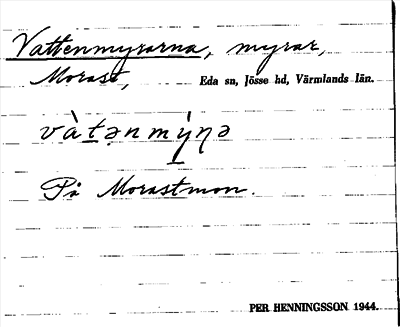 Vattenmyrarna, myrar,
Morast, Eda sn, Jösse hd, Värmlands län.
vàt̠ənmýṇə
På Morastmon.
PER HENNINGSSON 1944.